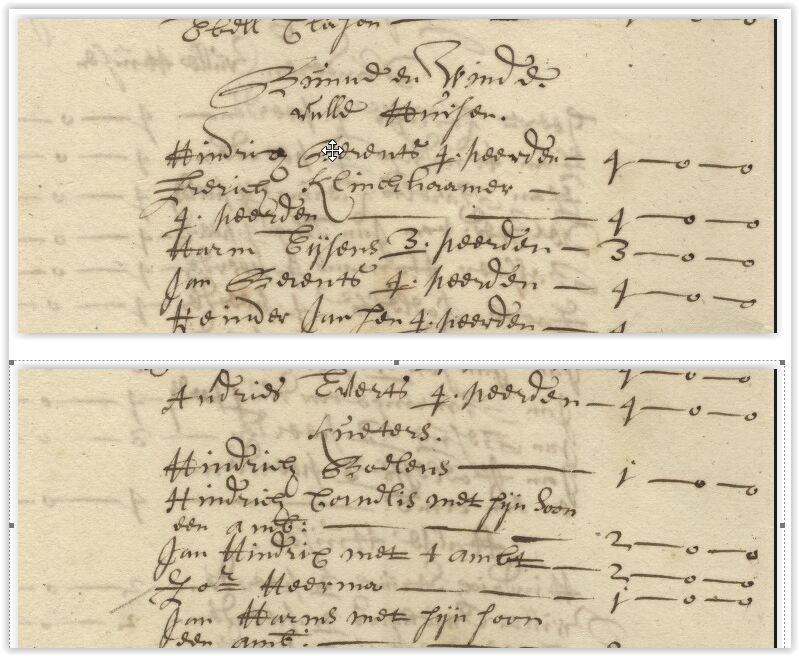 Ebell Clasen
Bunnd en Winde.
vulle Huisen.
Hindrig Berents 4. peerden — 4 — o — o
Frerich Klinckhaamer —
4. peerden — 4 — o — o
Harm Eijsens 3. peerden — 3 — o — o
Jan Berents 4. peerden — 4 — o — o
Heinder Jansen 4. peerden — 4
Andries Everts 4. peerden — 4 — o — o
Kueters.
Hindrich Boelens — 1 — o — o
Hindrich Cornelis met sijn Soon
een amb: — 2 — o — o
Jan Hindrix met 1 ambt — 2 — o — o
Heerma — 1 — o — o
Jan Harms met sijn soon
een amb: